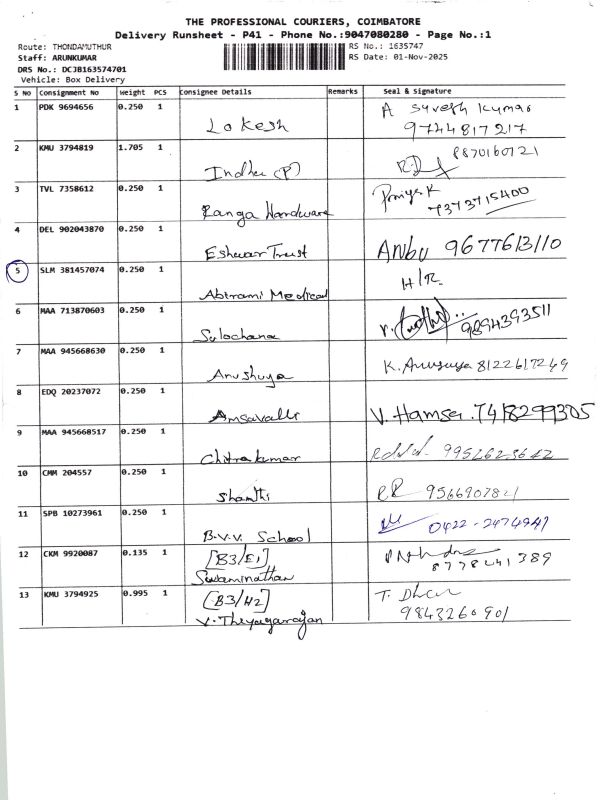 THE PROFESSIONAL COURIERS, COIMBATORE
Delivery Runsheet - P41 - Phone No.:9047080280 - Page No.:1
Route: THONDAMUTHUR
RS No.: 1635747
Staff: ARUNKUMAR
RS Date: 01-Nov-2025
DRS No.: DCJB163574701
Vehicle: Box Delivery
S No Consignment No Weight PCS Consignee Details Remarks Seal & Signature
1 PDK 9694656 0.250 1 Lokesh A Suresh Kumar
9744817217
2 KMU 3794819 1.705 1 Indhu (P) 8870160721
3 TVL 7358612 0.250 1 Ranga Hardware Priya K
7373715400
4 DEL 902043870 0.250 1 Eshwar Trust Anbu 9677613110
5 SLM 381457074 0.250 1 Abirami Medical H/R
6 MAA 713870603 0.250 1 Sulochana 9894393511
7 MAA 945668630 0.250 1 Anushuya K. Anusuya 8122617249
8 EDQ 20237072 0.250 1 Amsavalli V. Hamsa. 7418299305
9 MAA 945668517 0.250 1 Chitrakumar 9952623642
10 CMM 204557 0.250 1 Shanthi RR 9566907821
11 SPB 10273961 0.250 1 B.V.V. School 0422-2474947
12 CKM 9920087 0.135 1 [B3/E1]
Swaminathan 8778641389
13 KMU 3794925 0.995 1 [B3/H2] T.
V. Theyagarajan 9843260901